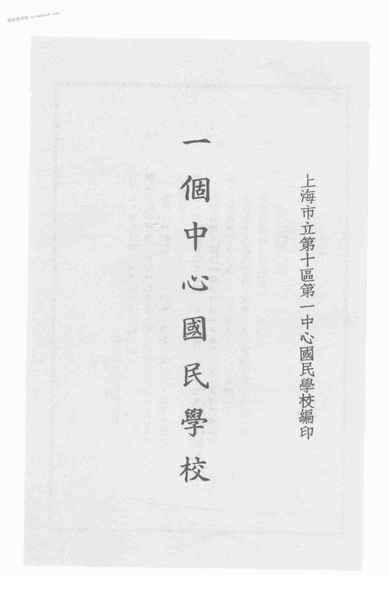 上海市立第十區第一中心國民學校編印
一個中心國民學校